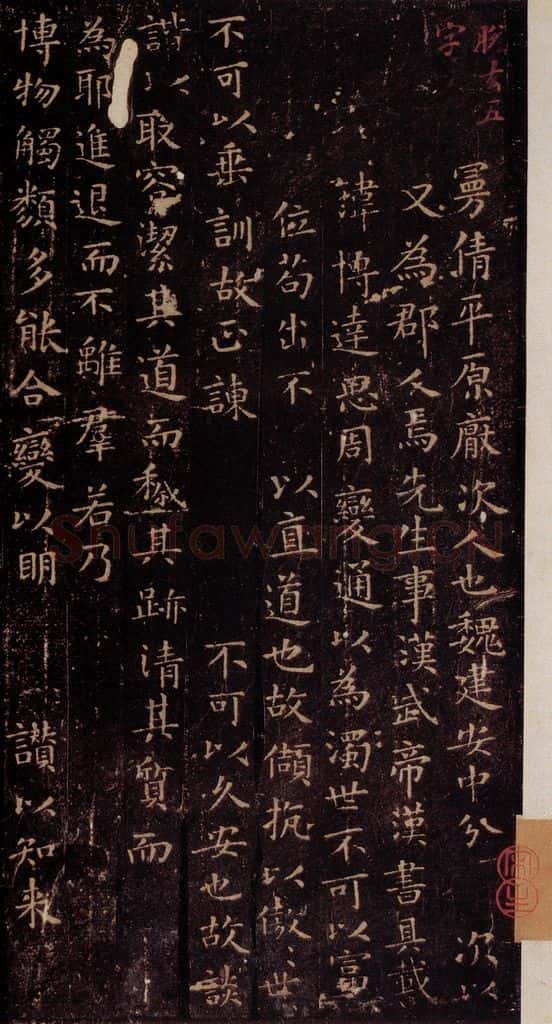 脫去五
字
曼倩平原厭次人也魏建安中分 次以
又為郡人焉先生事漢武帝漢書具載
瑋博達思周變通以為濁世不可以富
位苟出不 以直道也故抗以傲世
不可以垂訓故正諫 不可以久安也故談
諧以取容潔其道而穢其跡清其質而
為耶進退而不離羣若乃
博物觸類多能合變以明 讚以知來
Shufawang.CN